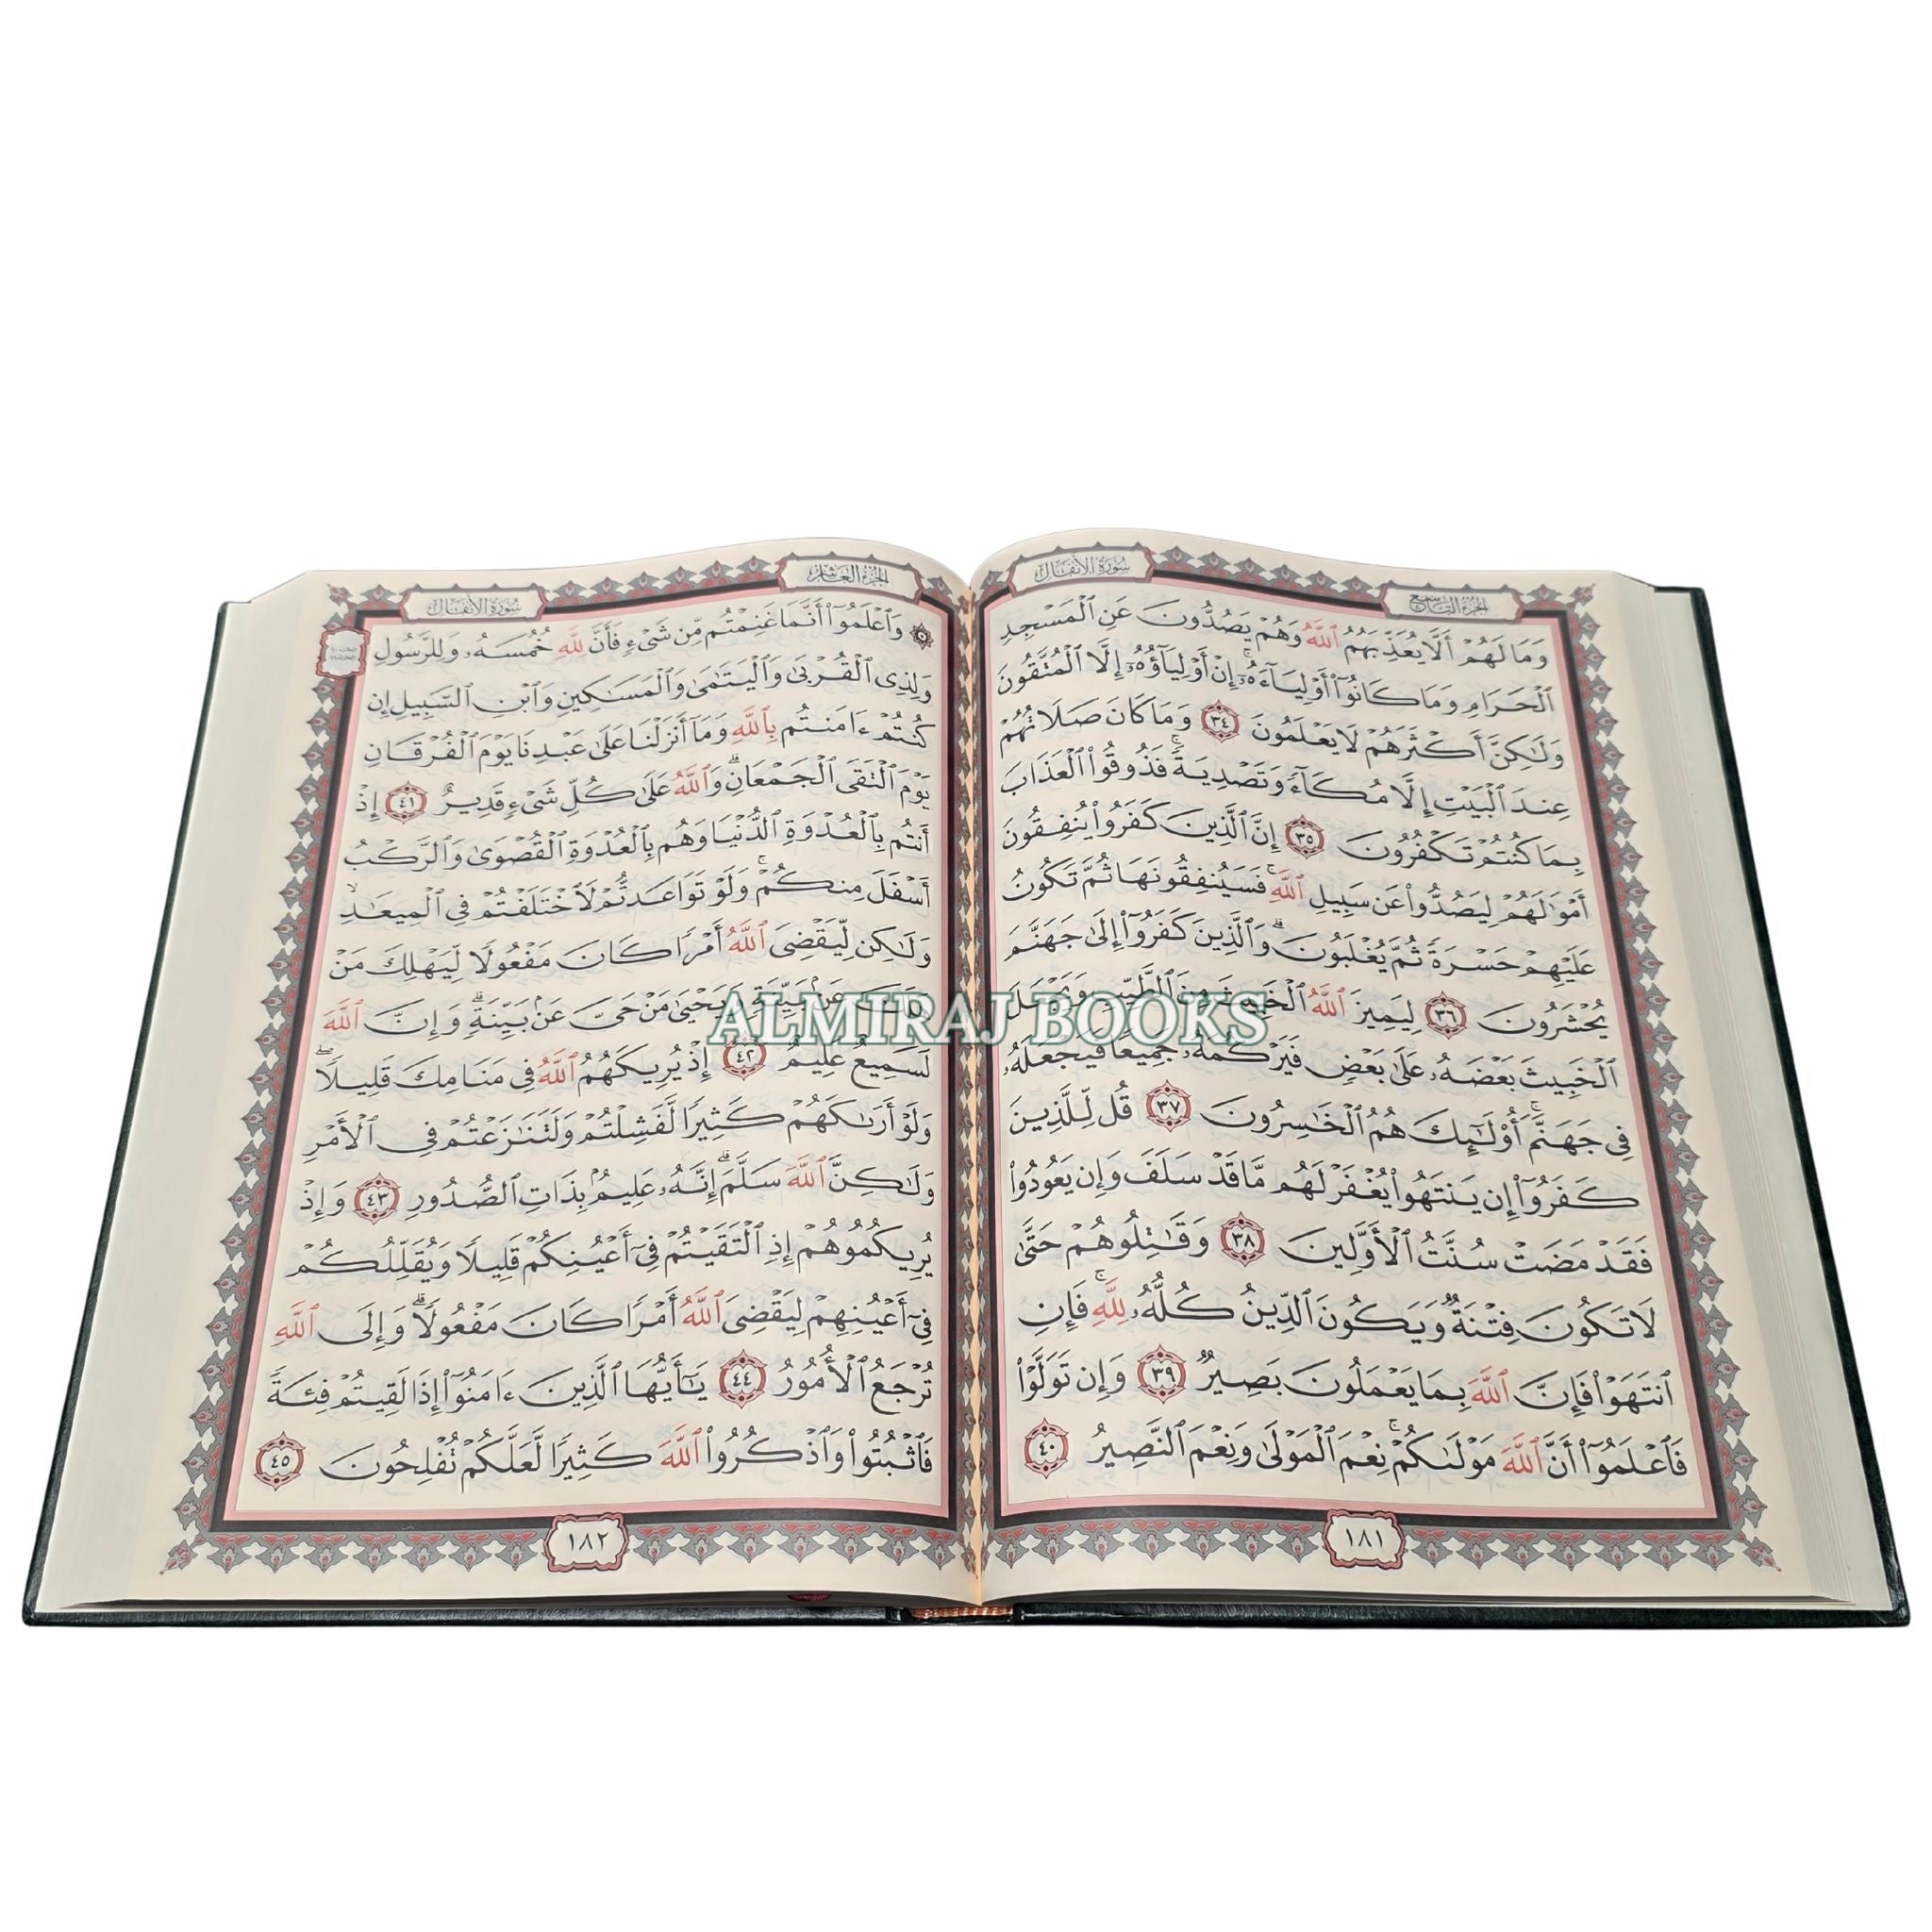 سُورَةُ الأَنفَال
الجُزْءُ التَّاسِعُ
وَمَا لَهُمْ أَلَّا يُعَذِّبَهُمُ ٱللَّهُ وَهُمْ يَصُدُّونَ عَنِ ٱلْمَسْجِدِ
ٱلْحَرَامِ وَمَا كَانُوٓا۟ أَوْلِيَآءَهُۥٓ ۚ إِنْ أَوْلِيَآؤُهُۥٓ إِلَّا ٱلْمُتَّقُونَ
وَلَٰكِنَّ أَكْثَرَهُمْ لَا يَعْلَمُونَ ٣٤ وَمَا كَانَ صَلَاتُهُمْ
عِندَ ٱلْبَيْتِ إِلَّا مُكَآءً وَتَصْدِيَةً ۚ فَذُوقُوا۟ ٱلْعَذَابَ
بِمَا كُنتُمْ تَكْفُرُونَ ٣٥ إِنَّ ٱلَّذِينَ كَفَرُوا۟ يُنفِقُونَ
أَمْوَٰلَهُمْ لِيَصُدُّوا۟ عَن سَبِيلِ ٱللَّهِ ۚ فَسَيُنفِقُونَهَا ثُمَّ تَكُونُ
عَلَيْهِمْ حَسْرَةً ثُمَّ يُغْلَبُونَ ۗ وَٱلَّذِينَ كَفَرُوٓا۟ إِلَىٰ جَهَنَّمَ
يُحْشَرُونَ ٣٦ لِيَمِيزَ ٱللَّهُ ٱلْخَبِيثَ مِنَ ٱلطَّيِّبِ وَيَجْعَلَ
ٱلْخَبِيثَ بَعْضَهُۥ عَلَىٰ بَعْضٍ فَيَرْكُمَهُۥ جَمِيعًا فَيَجْعَلَهُۥ
فِى جَهَنَّمَ ۚ أُو۟لَٰٓئِكَ هُمُ ٱلْخَٰسِرُونَ ٣٧ قُل لِّلَّذِينَ
كَفَرُوٓا۟ إِن يَنتَهُوا۟ يُغْفَرْ لَهُم مَّا قَدْ سَلَفَ وَإِن يَعُودُوا۟
فَقَدْ مَضَتْ سُنَّتُ ٱلْأَوَّلِينَ ٣٨ وَقَٰتِلُوهُمْ حَتَّىٰ
لَا تَكُونَ فِتْنَةٌ وَيَكُونَ ٱلدِّينُ كُلُّهُۥ لِلَّهِ ۚ فَإِنِ
ٱنتَهَوْا۟ فَإِنَّ ٱللَّهَ بِمَا يَعْمَلُونَ بَصِيرٌ ٣٩ وَإِن تَوَلَّوْا۟
فَٱعْلَمُوٓا۟ أَنَّ ٱللَّهَ مَوْلَىٰكُمْ ۚ نِعْمَ ٱلْمَوْلَىٰ وَنِعْمَ ٱلنَّصِيرُ ٤٠
١٨١
الجُزْءُ العَاشِرُ
سُورَةُ الأَنفَال
۞ وَٱعْلَمُوٓا۟ أَنَّمَا غَنِمْتُم مِّن شَىْءٍ فَأَنَّ لِلَّهِ خُمُسَهُۥ وَلِلرَّسُولِ
وَلِذِى ٱلْقُرْبَىٰ وَٱلْيَتَٰمَىٰ وَٱلْمَسَٰكِينِ وَٱبْنِ ٱلسَّبِيلِ إِن
كُنتُمْ ءَامَنتُم بِٱللَّهِ وَمَآ أَنزَلْنَا عَلَىٰ عَبْدِنَا يَوْمَ ٱلْفُرْقَانِ
يَوْمَ ٱلْتَقَى ٱلْجَمْعَانِ ۗ وَٱللَّهُ عَلَىٰ كُلِّ شَىْءٍ قَدِيرٌ ٤١ إِذْ
أَنتُم بِٱلْعُدْوَةِ ٱلدُّنْيَا وَهُم بِٱلْعُدْوَةِ ٱلْقُصْوَىٰ وَٱلرَّكْبُ
أَسْفَلَ مِنكُمْ ۚ وَلَوْ تَوَاعَدتُّمْ لَٱخْتَلَفْتُمْ فِى ٱلْمِيعَٰدِ ۙ
وَلَٰكِن لِّيَقْضِىَ ٱللَّهُ أَمْرًا كَانَ مَفْعُولًا لِّيَهْلِكَ مَنْ
هَلَكَ عَنۢ بَيِّنَةٍ وَيَحْيَىٰ مَنْ حَىَّ عَنۢ بَيِّنَةٍ ۗ وَإِنَّ ٱللَّهَ
لَسَمِيعٌ عَلِيمٌ ٤٢ إِذْ يُرِيكَهُمُ ٱللَّهُ فِى مَنَامِكَ قَلِيلًا ۖ
وَلَوْ أَرَىٰكَهُمْ كَثِيرًا لَّفَشِلْتُمْ وَلَتَنَٰزَعْتُمْ فِى ٱلْأَمْرِ
وَلَٰكِنَّ ٱللَّهَ سَلَّمَ ۗ إِنَّهُۥ عَلِيمٌۢ بِذَاتِ ٱلصُّدُورِ ٤٣ وَإِذْ
يُرِيكُمُوهُمْ إِذِ ٱلْتَقَيْتُمْ فِىٓ أَعْيُنِكُمْ قَلِيلًا وَيُقَلِّلُكُمْ
فِىٓ أَعْيُنِهِمْ لِيَقْضِىَ ٱللَّهُ أَمْرًا كَانَ مَفْعُولًا ۗ وَإِلَى ٱللَّهِ
تُرْجَعُ ٱلْأُمُورُ ٤٤ يَٰٓأَيُّهَا ٱلَّذِينَ ءَامَنُوٓا۟ إِذَا لَقِيتُمْ فِئَةً
فَٱثْبُتُوا۟ وَٱذْكُرُوا۟ ٱللَّهَ كَثِيرًا لَّعَلَّكُمْ تُفْلِحُونَ ٤٥
١٨٢
ALMIRAJ BOOKS